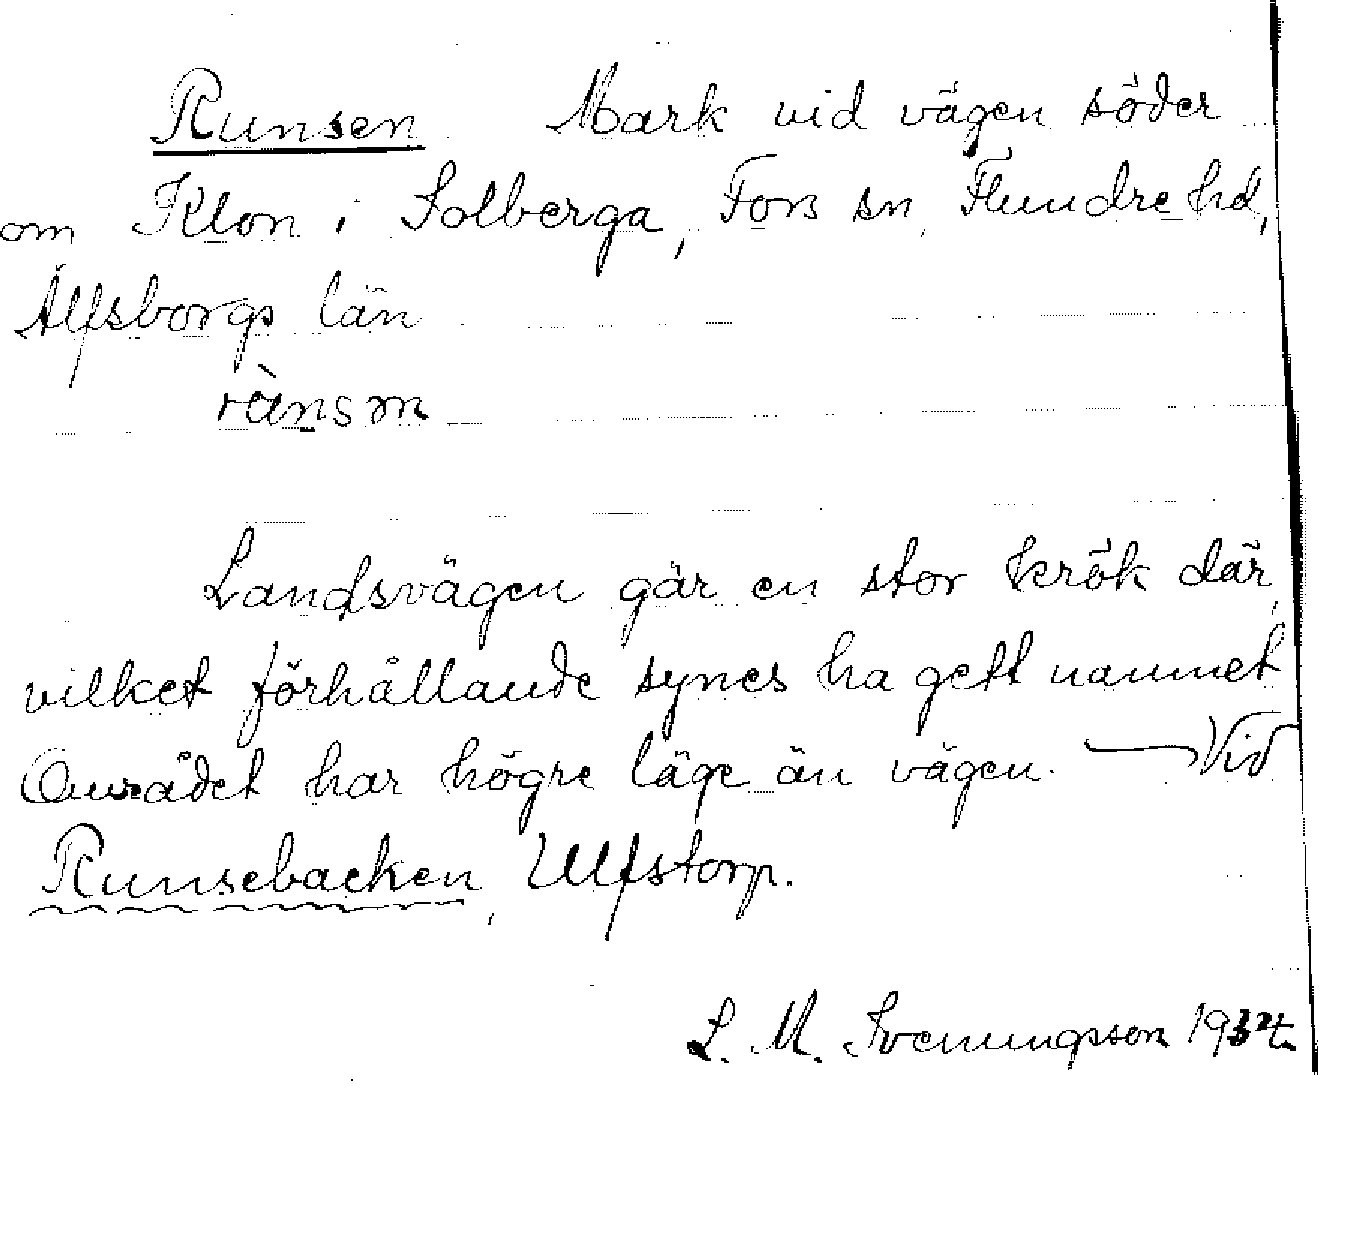 Runsen Mark vid vägen söder
om Klon i Solberga, Fors sn, Flundre hd,
Älfsborgs län
Landsvägen går en stor krök där,
vilket förhållande synes ha gett namnet
Området har högre läge än vägen. — Vid
Runsebacken, Ulfstorp.
L. M. Svenungsson